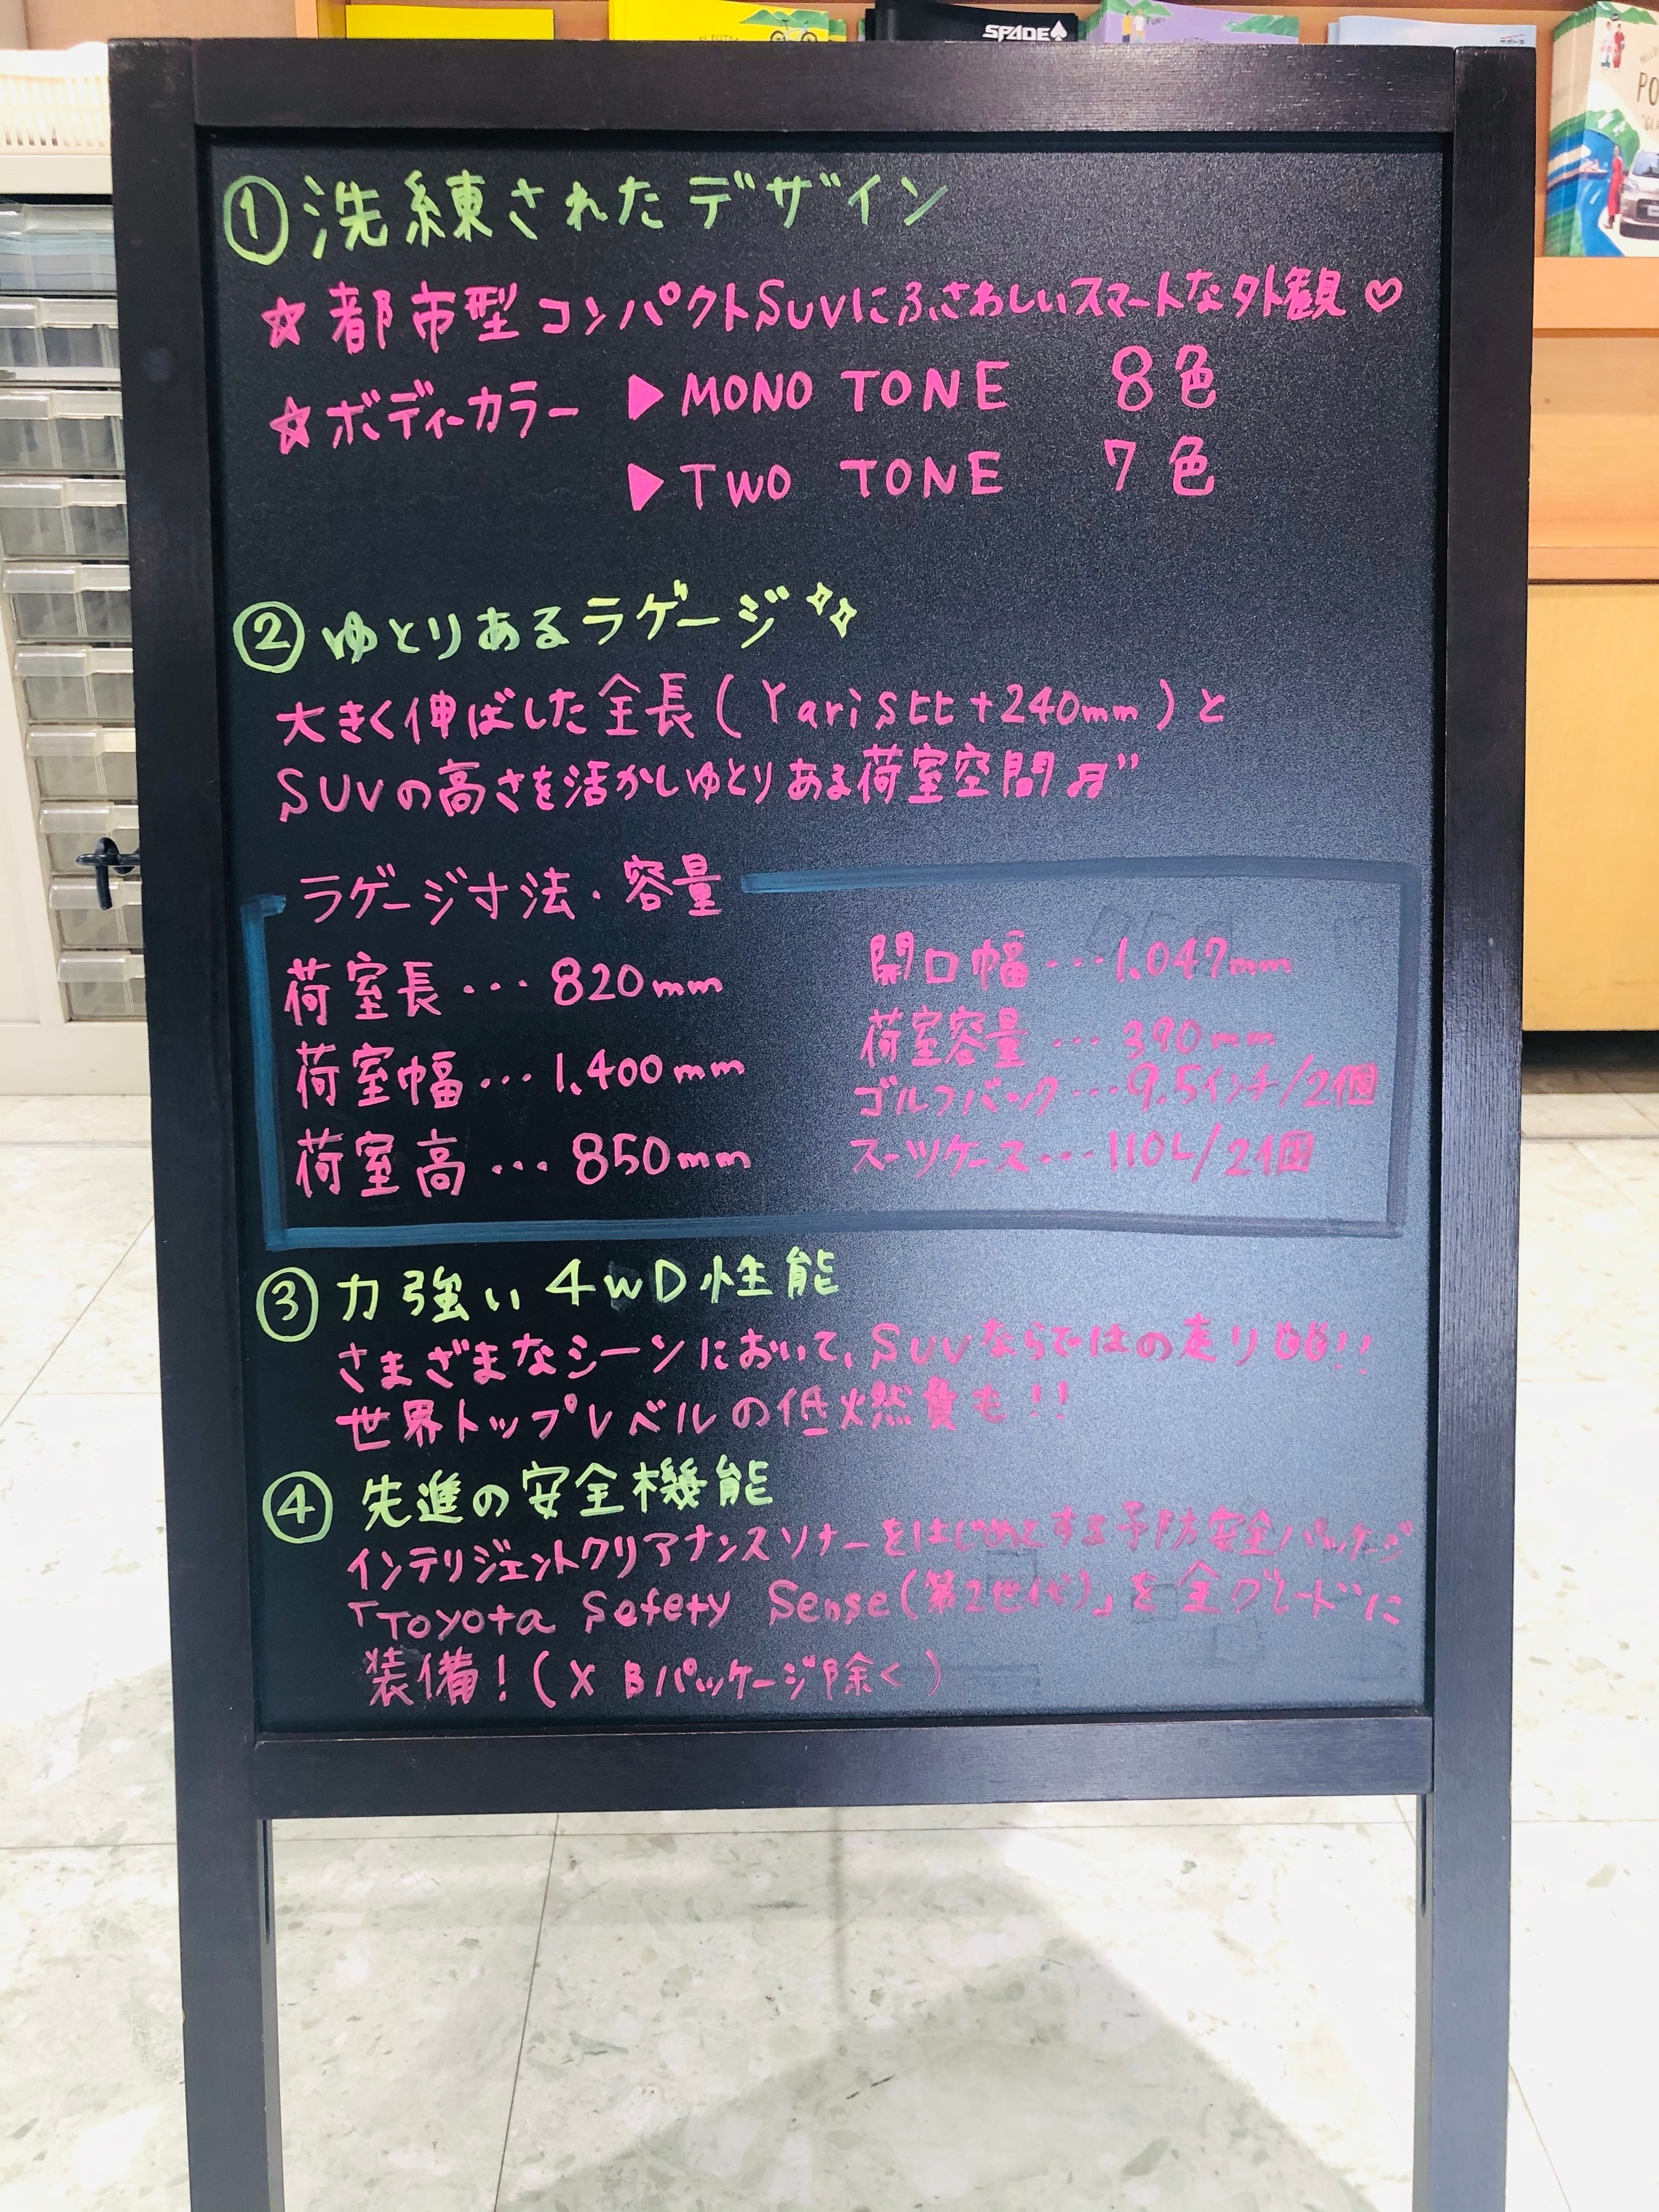 SPADE
FUN!
PO
①洗練されたデザイン
☆都市型コンパクトSUVにふさわしいスマートな外観♡
☆ボディーカラー ▶MONO TONE 8色
▶TWO TONE 7色
②ゆとりあるラゲージ
大きく伸ばした全長(Yaris比+240mm)と
SUVの高さを活かしゆとりある荷室空間♬"
ラゲージ寸法・容量
荷室長・・・820mm
荷室幅・・・1.400mm
荷室高・・・850mm
開口幅・・・1.047mm
荷室容量・・・390mm
ゴルフバック・・・9.5インチ/2個
スーツケース・・・110L/2個
③力強い4WD性能
さまざまなシーンにおいて、SUVならではの走り!!
世界トップレベルの低燃費も!!
④先進の安全機能
インテリジェントクリアナンスソナーをはじめとする予防安全パッケージ
「Toyota Sefety Sense(第2世代)」を全グレードに
装備!(X Bパッケージ除く)